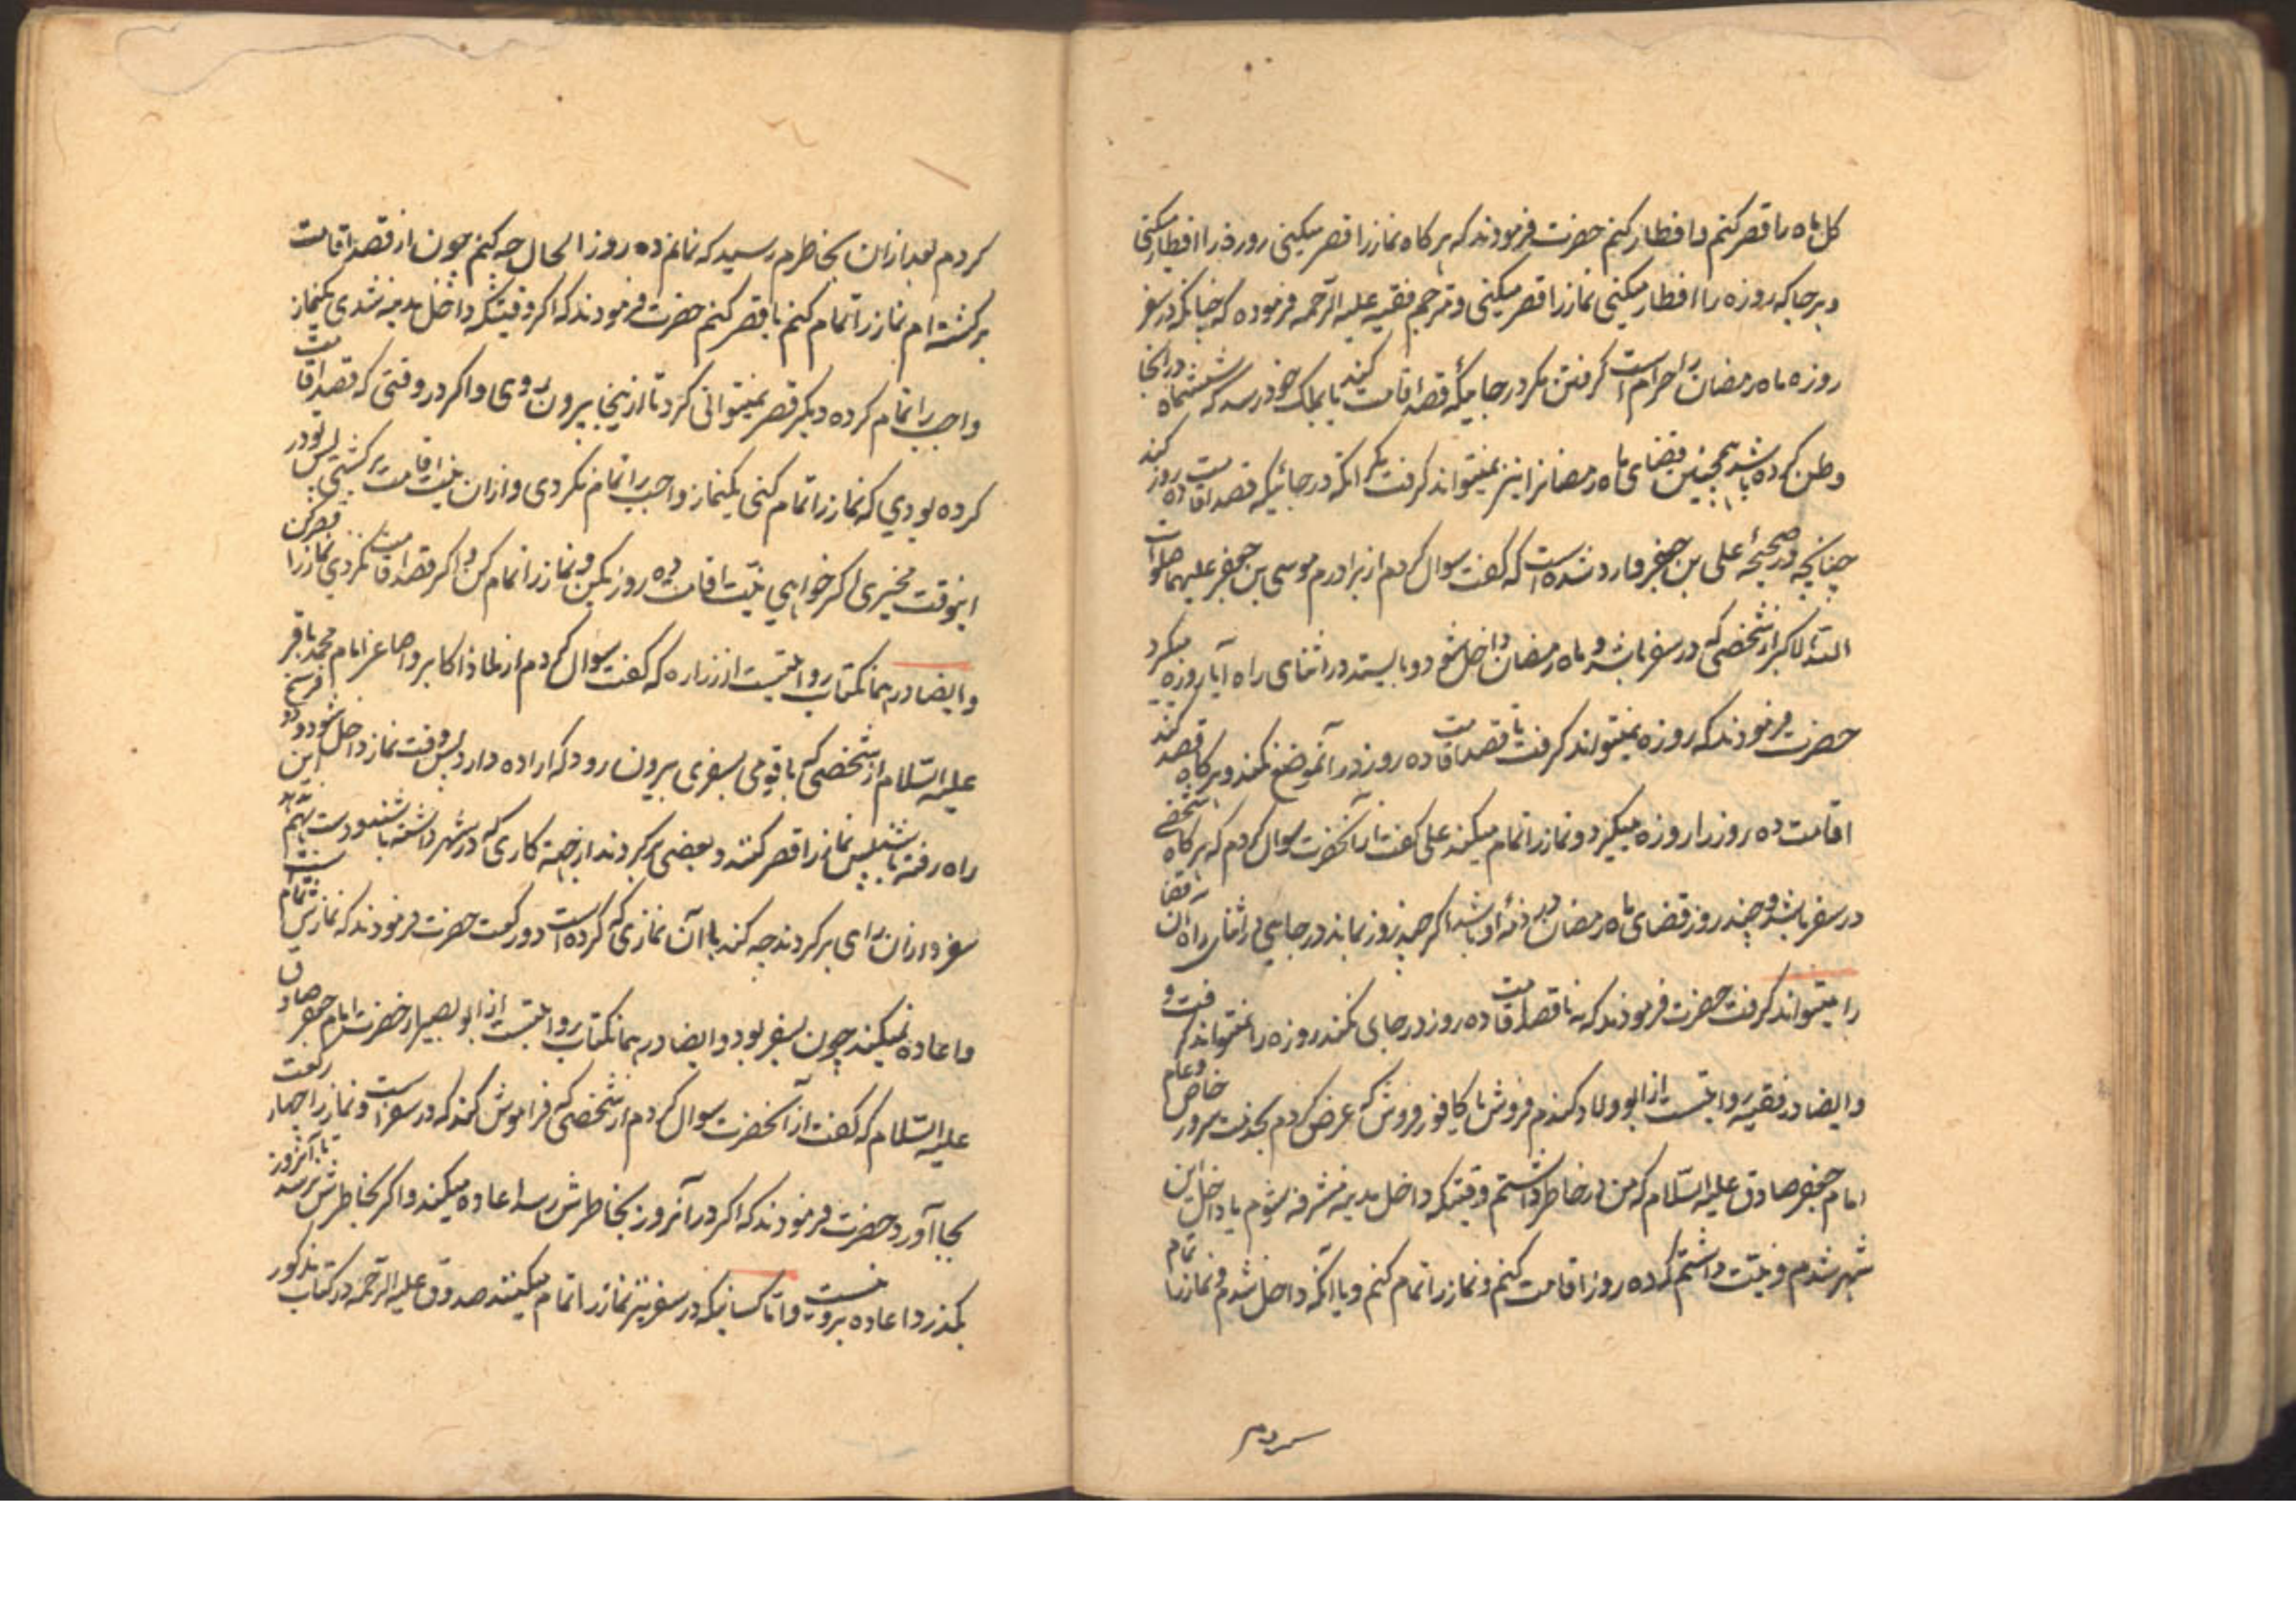 کل ماه را قصر کنم و افطار کنم حضرت فرمودند که هر کاه نماز را قصر میکنی روزه را افطار میکنی
و هر جا که روزه را افطار میکنی نماز را قصر میکنی و مترجم فقیه علیه الرحمه فرموده که چنانکه در سفر
روزه ماه رمضان را حرام است کرفتن مکر در جائیکه قصد اقامت کنند یا بملک خود رسد که ششماه در انجا
وطن کرده باشد همچنین قضای ماه رمضانرا نیز نمیتواند کرفت مکر انکه در جائیکه قصد اقامت ده روز کند
چنانچه در صحیحه علی بن جعفر وارد شده است که کفت سوال کردم از برادرم موسی بن جعفر علیهما صلوات
الله الاکبر از شخصی که در سفر باشد و ماه رمضان داخل شود و بایستد در اثنای راه آیا روزه میکیرد
حضرت فرمودند که روزه نمیتواند کرفت تا قصد اقامت ده روز در آنموضع نکند و هر کاه قصد کند
اقامت ده روز را روزه میکیرد و نماز را تمام میکند علی کفت از آنحضرت سوال کردم که هر کاه شخصی
در سفر باشد و چند روز قضای ماه رمضان در ذمه او باشد اکر چند روز بماند در جایی در اثنای راه آن قضا
را میتواند کرفت حضرت فرمودند که نه تا قصد اقامت ده روز در جای نکند روزه را نمیتواند کرفت و
و ایضا در فقیه روایتست از ابو ولاد کندم فروش یا کافور فروش که عرض کردم بخدمت سرور خاص و عام
امام جعفر صادق علیه السلام که من در خاطر داشتم وقتیکه داخل مدینه مشرفه شوم یا داخل این
شهر شدم و نیت داشتم که ده روز اقامت کنم و نماز را تمام کنم و با آنکه داخل شدم و نماز را تمام
کردم بعد از ان بخاطرم رسید که نمانم ده روز الحال چه کنم چون از قصد اقامت
برکشته ام نماز را تمام کنم یا قصر کنم حضرت فرمودند که اکر وقتیکه داخل مدینه شدی یکنماز
واجب را تمام کرده دیکر قصر نمیتوانی کرد تا از ینجا بیرون روی و اکر در وقتی که قصد اقامت
کرده بودی که نماز را تمام کنی یکنماز واجب را تمام نکردی و از ان نیت اقامت برکشتی پس تو در
اینوقت مخیری اکر خواهی نیت اقامت ده روز بکن و نماز را تمام کن و اکر قصد اقامت نکردی نماز را قصر کن
و ایضا در همانکتاب روایتست از زراره که کفت سوال کردم از ملاذ اکابر و اصاغر امام محمد باقر
علیه السلام از شخصی که با قومی بسفری بیرون رود که اراده دارد پس وقت نماز داخل شود و دو فرسخ
راه رفته باشند پس نماز را قصر کنند و بعضی برکردند از جهة کاری که در شهر داشته باشند
سفر و از ان رای برکردند چه کند با آن نمازی که کرده است دو رکعت حضرت فرمودند که نمازش تمام است
و اعاده نمیکند چون بسفر بود و ایضا در همانکتاب روایتست از ابو بصیر از حضرت امام جعفر صادق
علیه السلام که کفت از آنحضرت سوال کردم از شخصی که فراموش کند که در سفر است و نماز را چهار رکعت
بجا آورد حضرت فرمودند که اکر در آنروز بخاطرش رسد اعاده میکند و اکر بخاطرش نرسد تا آنروز
بکذرد اعاده برو نیست و اما کسانیکه در سفر نیز نماز را تمام میکنند صدوق علیه الرحمه در کتاب مذکور